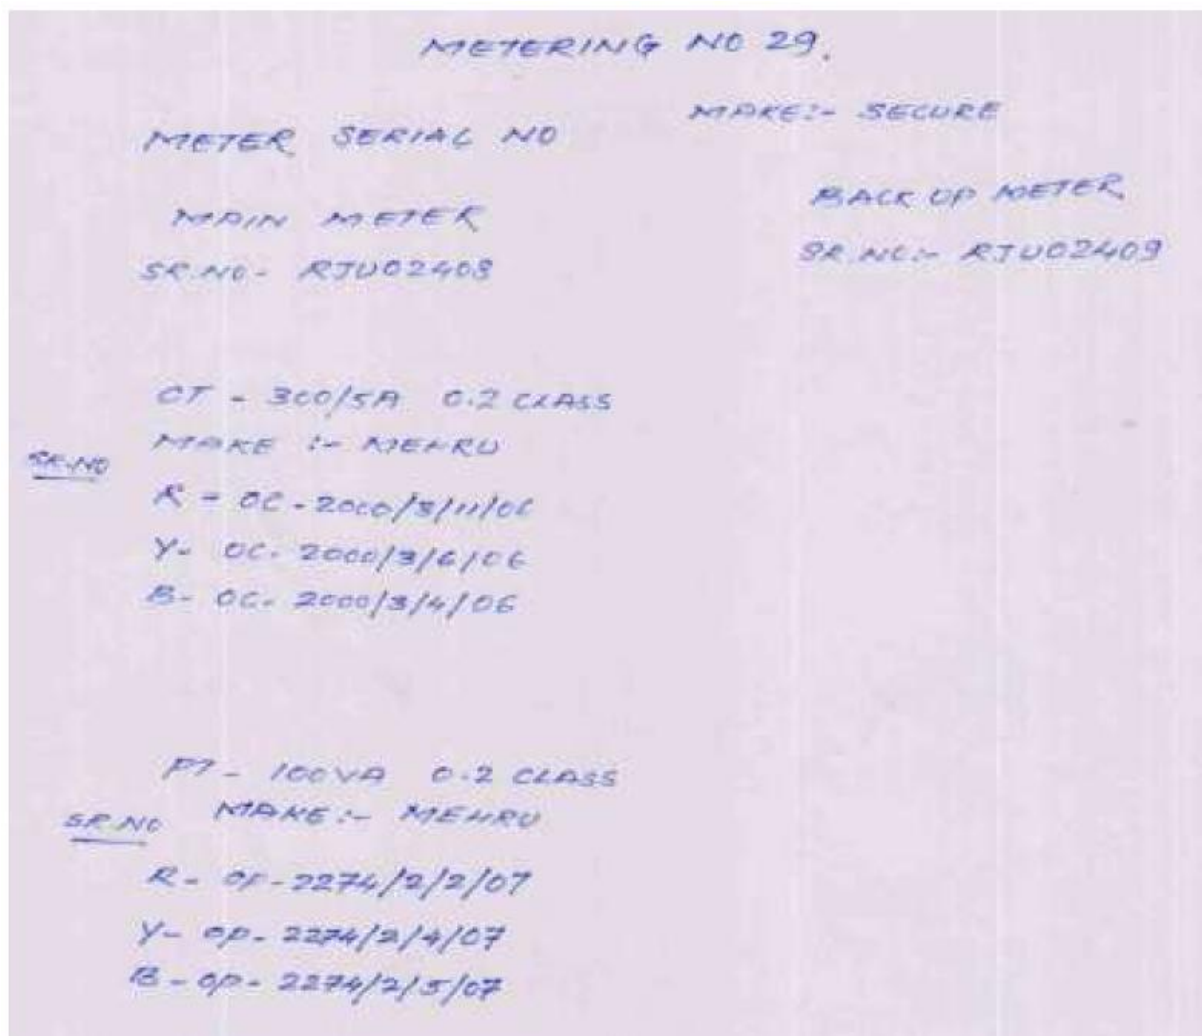 METERING NO 29.
MAKE:- SECURE
METER SERIAL NO
MAIN METER
BACK UP METER
SR.NO- RJU02408
SR.NO:- RJU02409
CT - 300/5A 0.2 CLASS
MAKE :- MEHRU
SR.NO
R - OC - 2000/3/11/06
Y- OC- 2000/3/6/06
B- OC- 2000/3/4/06
PT - 100VA 0.2 CLASS
SR.NO MAKE:- MEHRU
R- OP-2274/2/2/07
Y- OP- 2274/2/4/07
B- OP- 2274/2/5/07